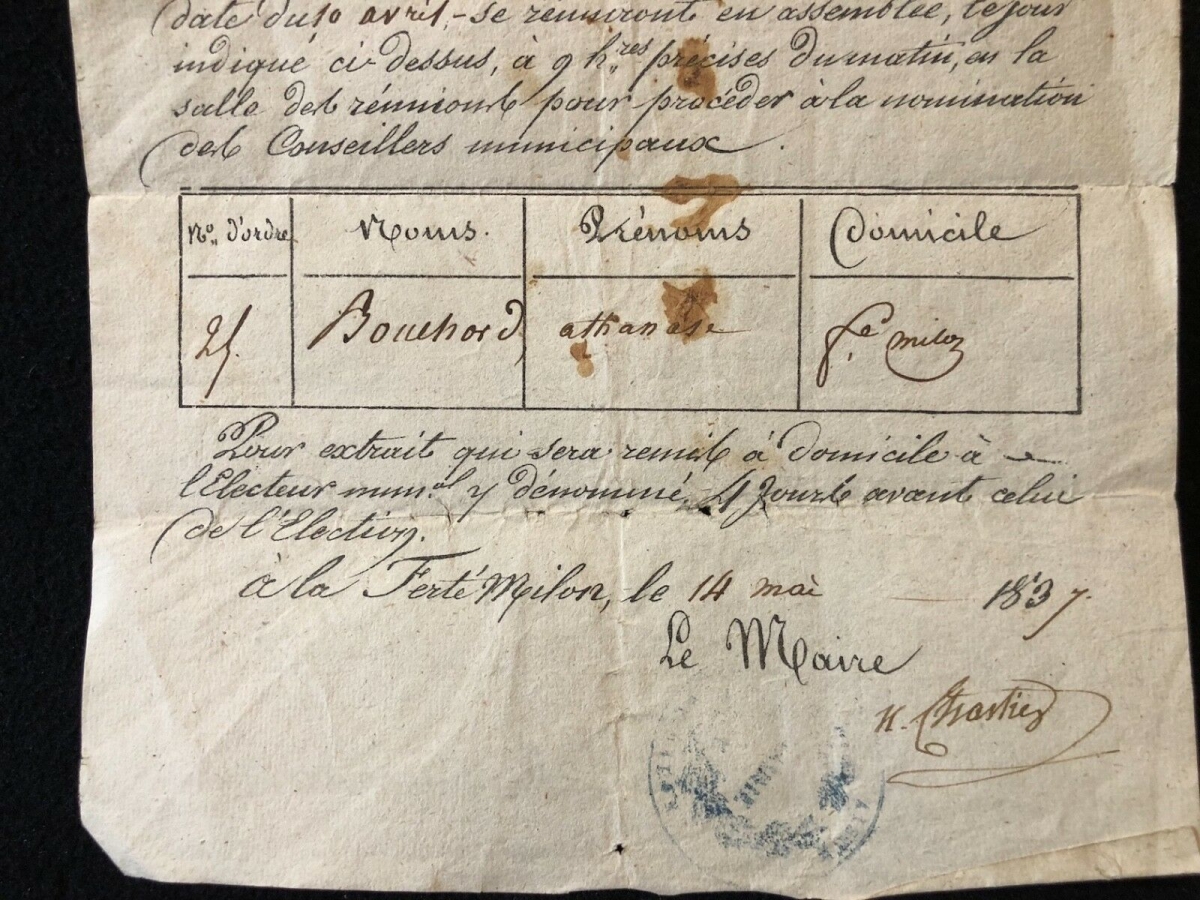 date du 10 avril, - se réuniront en assemblée, le jour
indiqué ci-dessus, à 9 h.res précises du matin, en la
salle des réunions pour procéder à la nomination
des Conseillers municipaux.
No. d'ordre Noms. Prénoms Domicile
25. Bouchard athanase fe. milon
Pour extrait qui sera remis à domicile à
l'Electeur mun.al y dénommé, 4 Jours avant celui
de l'Election.
à la Ferté Milon, le 14 mai 1837.
Le Maire
H. Chartier
MAIRIE